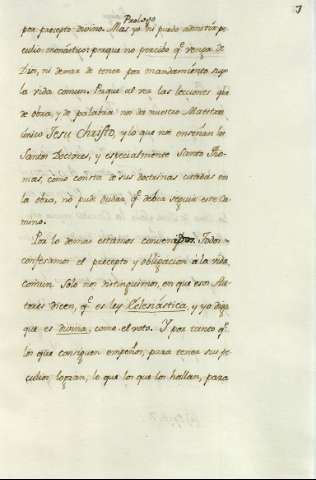 Prologo
7
por precepto divino. Mas yo ni puedo admitir pe-
culio monástico: porque no percibo qᵉ venga de
Dios, ni dexar de tener por mandamiento suyo
la vida comun. Porque al ver las lecciones qᵉ
de obra, y de palabra nos da nuestro Maestro
único Jesu Christo, y lo que nos enseñan los
Santos Doctores, y especialmente Santo Tho-
mas, como consta de sus doctrinas citadas en
la obra, no pude dudar qᵉ debia seguir este ca-
mino.
Por lo demas estamos convenidos. Todos
confesamos el precepto y obligacion á la vida
comun. Solo nos distinguimos, en que esos Au-
tores dicen, qᵉ es ley Eclesiástica, y yo digo
que es divina, como el voto. Y por tanto qᵉ
los que consiguen empeños, para tener sus pe-
culios, logran, lo que los que los hallan, para